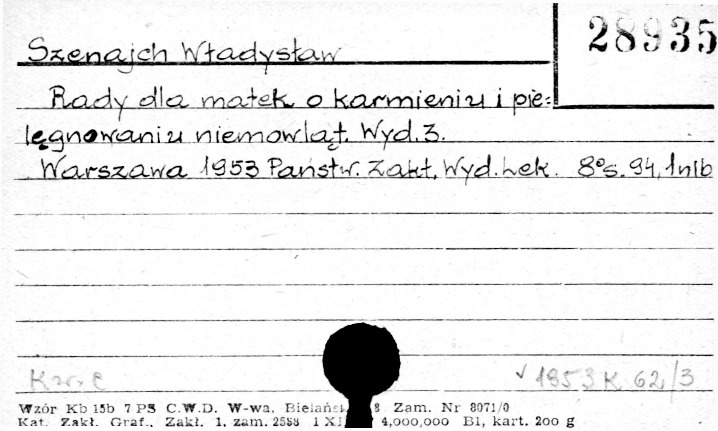 28935
Szenajch Władysław
Rady dla matek o karmieniu i pie=
lęgnowaniu niemowląt. Wyd. 3.
Warszawa 1953 Państw. Zakł. Wyd. Lek. 8° s. 94, 1 nlb
1953 K 62/3
Wzór Kb 15b 7 PS C.W.D. W-wa, 8 Zam. Nr 8071/0
Kat. Zakł. Graf., Zakł. 1, zam. 2588 4,000,000 B1, kart. 200 g